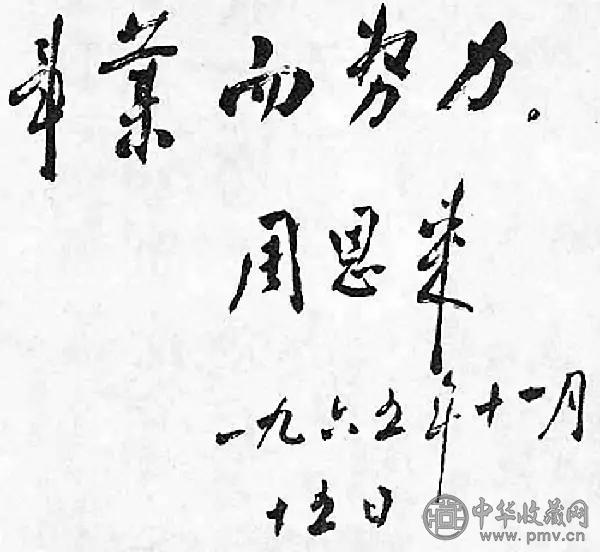 事業而努力。
周恩来
一九六五年十一月
十五日
中华收藏网
www.pmv.cn